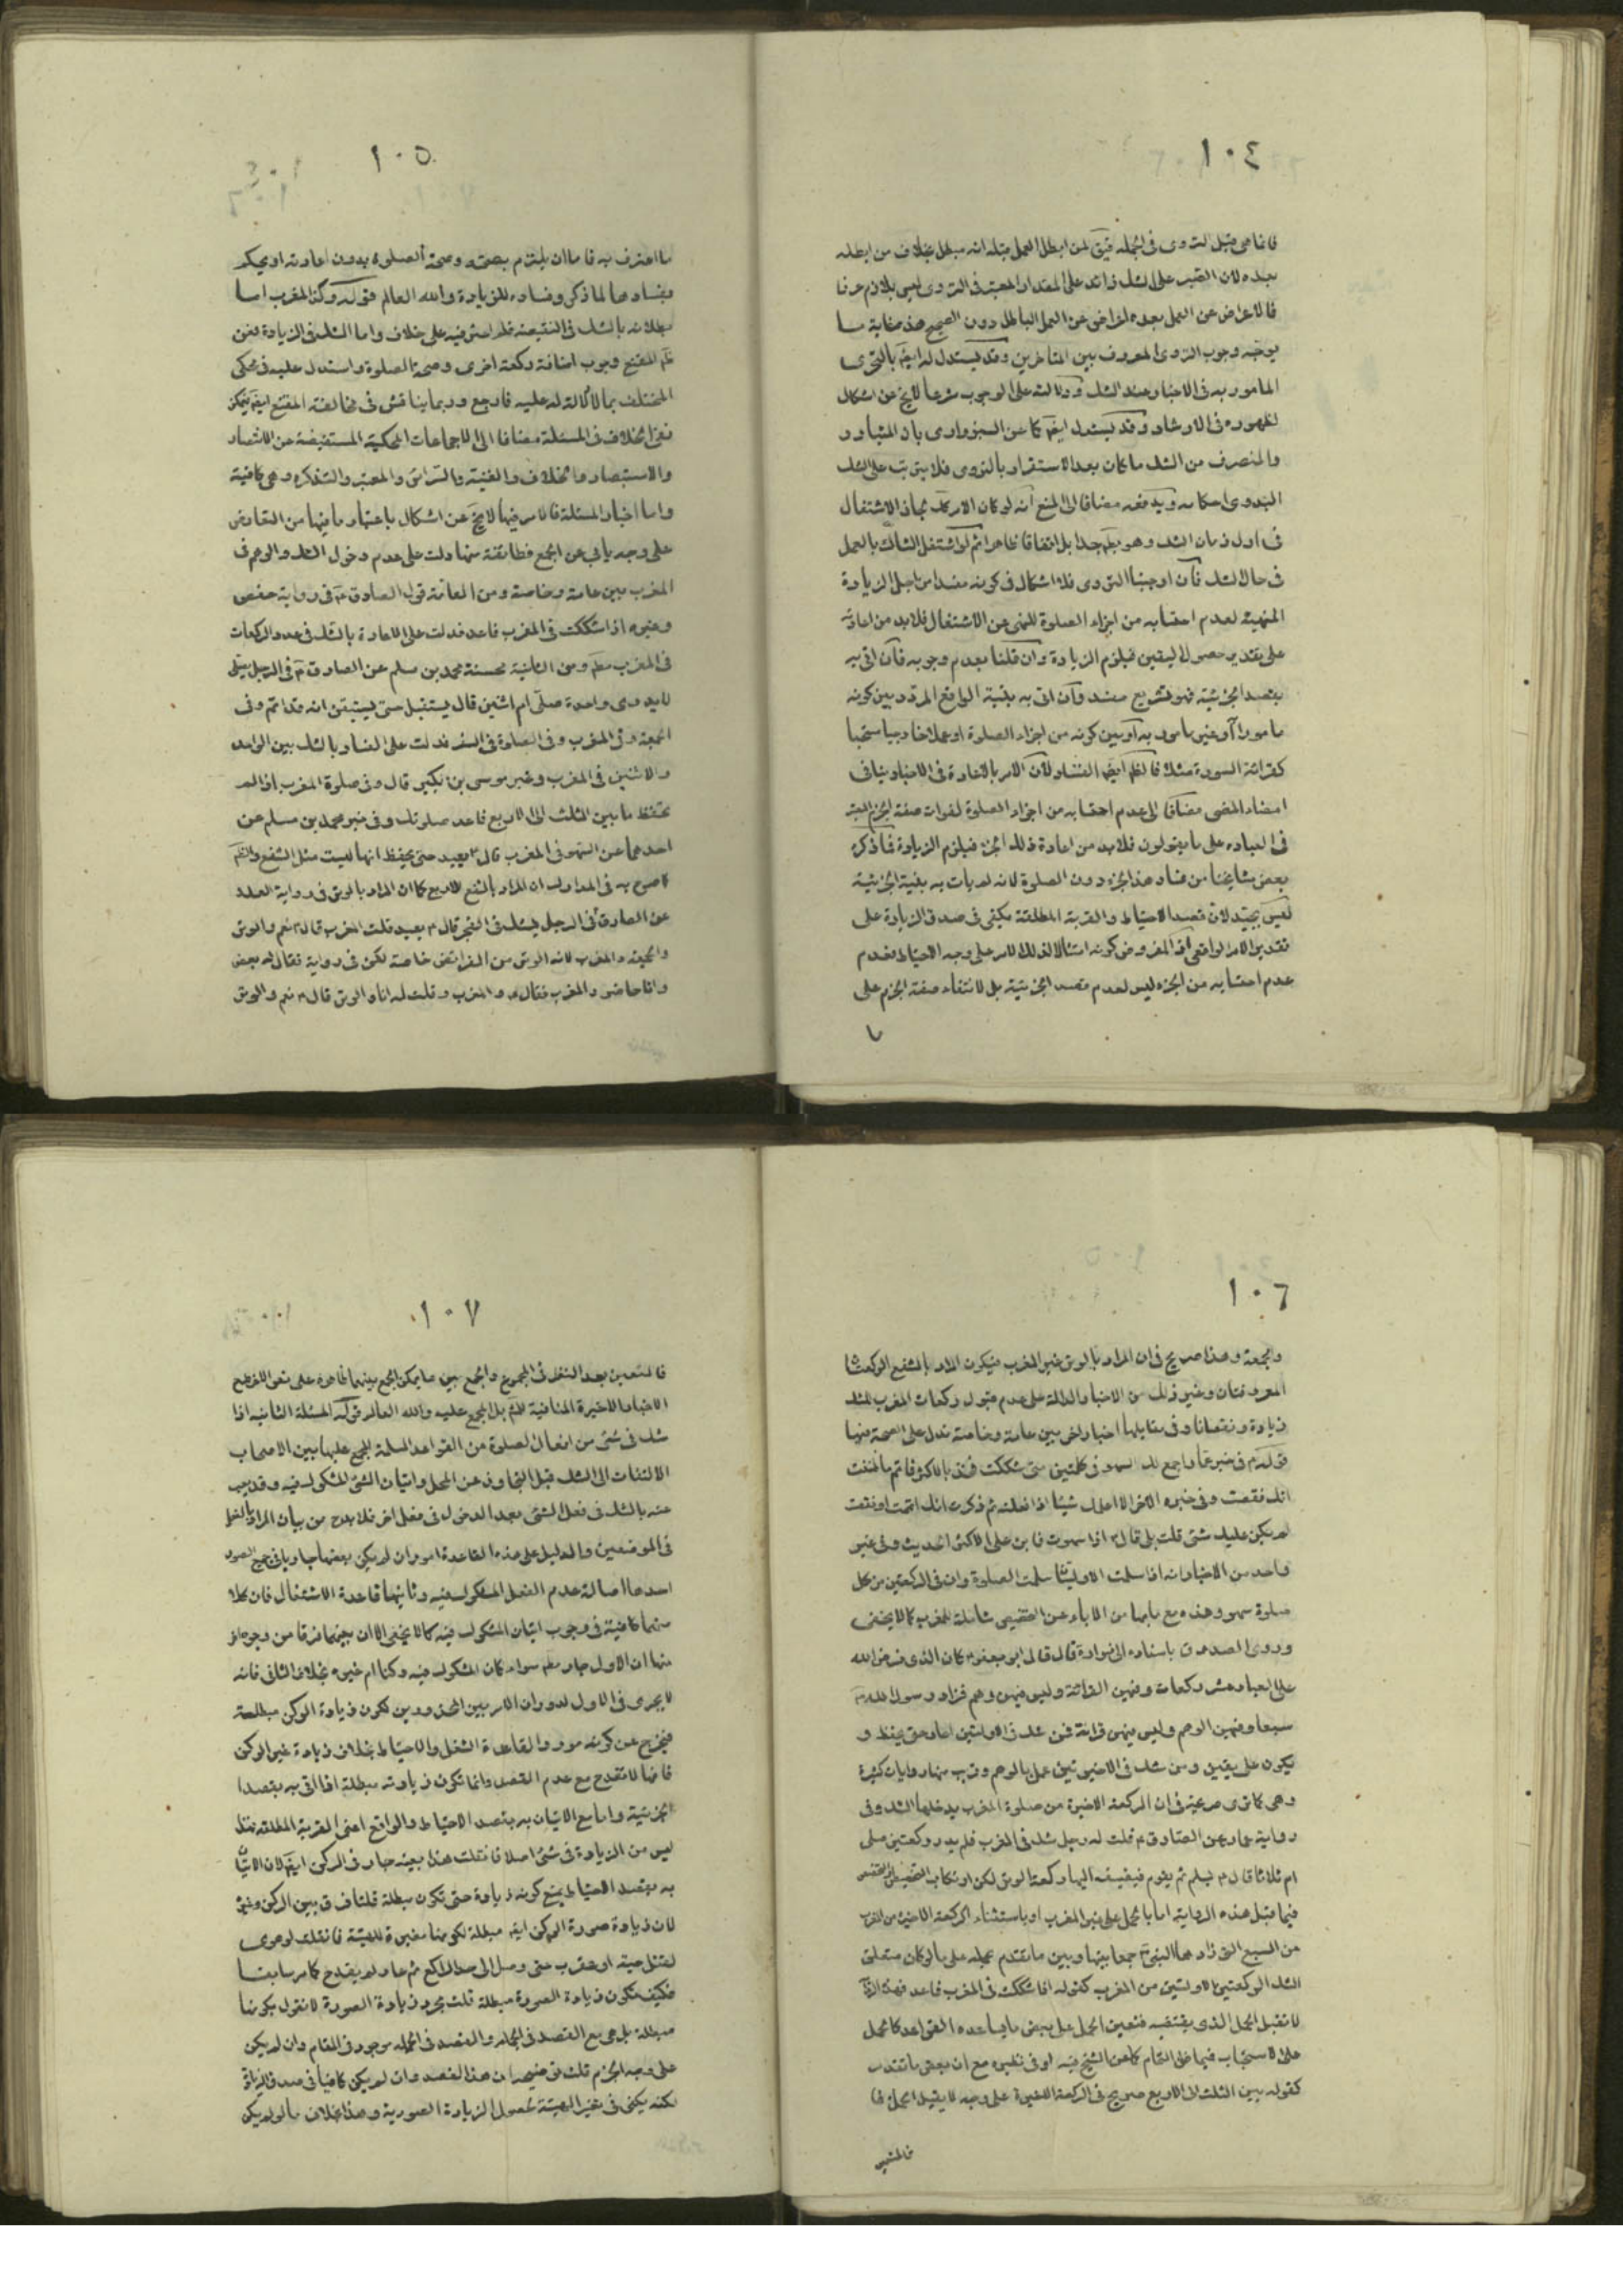 ١٠٤
فانما هي قبل التروى في الجملة لمن ابطل العمل قبله انه مبطل بخلاف من ابطله
بعده لان الصبر على الشك زائد على المقدار المعتبر في التروى ليس بلازم عرفا
فالاعراض عن العمل بعده اعراض عن العمل الباطل دون الصحيح هذه غاية ما
يوجه وجوب التروى المعروف بين المتاخرين وقد يستدل له ايضا بالتحرى
المامور به في الاخبار عند الشك ودلالته على الوجوب شرعا لا يخ عن اشكال
لظهوره في الارشاد وقد يستدل ايضا كما عن السبزوارى بان المتبادر
والمنصرف من الشك ما كان بعد الاستقرار بالتروى فلا يترتب على الشك
البدوى احكامه ويدفعه مضافا الى المنع انه لو كان الامر كك لجاز الاشتغال
في اول زمان الشك وهو بل اتفاقا ظاهرا ثم لو اشتغل الشاك بالعمل
في حال الشك فان اوجبنا التروى فلا اشكال في كونه مفسدا من اجل الزيادة
المنهية لعدم احتسابه من اجزاء الصلوة للنهى عن الاشتغال فلابد من اعادته
على تقدير حصول اليقين فيلزم الزيادة وان قلنا بعدم وجوبه فان اتى به
بقصد الجزئية فهو تشريع مفسد وان اتى به بنية الواقع المردد بين كونه
مامورا او غير مامور به او بين كونه من اجزاء الصلوة او عملا خارجيا مستحبا
كقرائة السورة مثلا ايضا الفساد لان الامر بالاعادة في الاخبار ينافى
امضاء المضى مضافا الى عدم احتسابه من اجزاء الصلوة لفوات صفة الجزم المعتبر
في العباده على ما يقولون فلابد من اعادة ذلك الجزء فيلزم الزيادة فما ذكره
بعض مشايخنا من فساد هذا الجزء دون الصلوة لانه لم يات به بنية الجزئية
ليس بجيد لان قصد الاحتياط والقربة المطلقة يكفى في صدق الزيادة على
تقدير الامر الواقعى اذ المفروض كونه امتثالا لذلك الامر على وجه الاحتياط فعدم
عدم احتسابه من الجزء ليس لعدم قصد الجزئية بل لانتفاء صفة الجزم على
١٠٥
ما اعترف به فاما ان يلتزم بصحته وصحة الصلوة بدون اعادته او يحكم
بفسادهما لما ذكر وفساده للزيادة والله العالم قوله وكذا المغرب اما
بطلانه بالشك في النقيصة على خلاف واما الشك في الزيادة فعن
المقنع وجوب اضافة ركعة اخرى وصحة الصلوة واستدل عليه في محكى
المختلف بما لا دلالة له عليه فارجع وربما يناقش في مخالفة المقنع
نفى الخلاف في المسئلة مضافا الى الاجماعات المحكية المستفيضة عن الانتصار
والاستبصار والخلاف والغنية والسرائر والمعتبر والتذكره وهى كافية
واما اخبار المسئلة فالامر فيها لا يخ عن اشكال باعتبار ما فيها من التعارض
على وجه يابى عن الجمع فطائفة منها دلت على عدم دخول الشك والوهم في
المغرب بين عامة وخاصة ومن العامة قول الصادق ع في رواية حفص
وغيره اذا شككت في المغرب فاعد فدلت على الاعادة بالشك في عدد الركعات
في المغرب ومن الثانية حسنة محمد بن مسلم عن الصادق ع في الرجل يصلى
لا يدرى واحدة صلى ام اثنين قال يستقبل حتى يستيقن انه قد اتم وفى
الجمعة وفى المغرب وفى الصلوة في السفر فدلت على الفساد بالشك بين الواحد
والاثنين في المغرب وخبر موسى بن بكير قال وفى صلوة المغرب اذا لم
تحفظ ما بين الثلث الى الاربع فاعد صلوتك وفى خبر محمد بن مسلم عن
احدهما عن السهو في المغرب قال ع يعيد حتى يحفظ انها ليست مثل الشفع
صرح به في ان المراد بالشفع الاربع كما ان المراد بالوتر في رواية العلاء
عن الصادق في الرجل يشك في الفجر قال ع يعيد قلت المغرب قال ع نعم والوتر
والجمعة والمغرب لانه الوتر من الفرائض خاصة لكن في رواية فقال له بعض
وانا حاضر والمغرب فقال ع والمغرب وقلت له انا والوتر قال ع نعم والوتر
١٠٦
والجمعة وهذا صريح في ان المراد بالوتر غير المغرب فيكون المراد بالشفع الركعتان
المعروفتان وغير ذلك من الاخبار الدالة على عدم قبول ركعات المغرب للشك
زيادة ونقصانا وفى مقابلها اخبار اخر بين عامة وخاصة تدل على الصحة منها
قوله ع في خبر اجمع لك السهو في كلمتين متى شككت فخذ بالاكثر فاتم ما ظننت
انك نقصت وفى خبره الاخر الا اعلمك شيئا اذا فعلته ثم ذكرت انك اتممت او نقصت
لم يكن عليك شئ قلت بلى قال ع اذا سهوت فابن على الاكثر الحديث وفى غير
واحد من الاخبار انه اذا سلمت الاوليتان سلمت الصلوة وان في الركعتين من كل
صلوة سهو وهذه مع مابها من الاباء عن التخصيص شاملة للمغرب كما لا يخفى
وروى الصدوق باسناده الى زرارة قال قال ابو جعفر ع كان الذى فرض الله
على العباد عشر ركعات وفيهن القرائة وليس فيهن وهم فزاد رسول الله ص
سبعا وفيهن الوهم وليس فيهن قرائة فمن شك في الاولتين اعاد حتى يحفظ و
يكون على يقين ومن شك في الاخيرتين عمل بالوهم وقريب منها روايات كثيرة
وهى كما ترى صريحة في ان الركعة الاخيرة من صلوة المغرب يدخلها الشك وفى
رواية عمار عن الصادق ع قلت له رجل شك في المغرب فلم يدر ركعتين صلى
ام ثلاثا قال ع يسلم ثم يقوم فيضيف اليها ركعة الوتر لكن ارتكاب التخصيص
فيما قبل هذه الرواية اما بالحمل على غير المغرب او باستثناء الركعة الاخيرة من المغرب
من السبع التى زادها النبى ص جمعا بينها وبين ما تقدم بحمله على ما لو كان متعلق
الشك الركعتين الاولتين من المغرب كقوله اذا شككت في المغرب فاعد فهذه
لا تقبل الحمل الذى يقتضيه فتعين الحمل على بعض ما يساعده القواعد كالحمل
على الاستحباب فيما ظن التمام كما عن الشيخ فيه او في نظيره مع ان بعض ما تقدم
كقوله بين الثلث الى الاربع صريح في الركعة الاخيرة على وجه لا يقبل الحمل
١٠٧
فالمتعين بعد النظر في المجموع والجمع بين ما يمكن الجمع بينهما على نفى
الاخبار الاخيرة المنافية بل المجمع عليه والله العالم قوله المسئلة الثانية اذا
شك في شئ من افعال الصلوة من القواعد المسلمة المجمع عليها بين الاصحاب
الالتفات الى الشك قبل التجاوز عن المحل واتيان الشئ المشكوك فيه وقد يعبر
عنه بالشك في فعل الشئ بعد الدخول في فعل اخر فلابد من بيان المراد
في الموضعين والدليل على هذه القاعدة امور ان لم يكن بعضها جاريا في جميع الصور
احدها اصالة عدم الفعل المشكوك فيه وثانيها قاعدة الاشتغال فان كلا
منهما كافية في وجوب اتيان المشكوك فيه كما لا يخفى الا ان بينهما فرقا من وجوه
منها ان الاول جار سواء كان المشكوك فيه ركنا ام غيره بخلاف الثانى فانه
لا يجرى في الاول لدوران الامر بين المحذورين لكون زيادة الركن مبطلة
فيخرج عن كونه مورد القاعدة الشغل والاحتياط بخلاف زيادة غير الركن
فانها لا تقدح مع عدم القصد وانما تكون زيادته مبطلة اذا اتى به بقصد
الجزئية واما مع الاتيان به بقصد الاحتياط والواقع اعنى القربة المطلقة
ليس من الزيادة في شئ اصلا فان قلت هذا بعينه جار في الركن ايضا لان الاتيان
به بقصد الاحتياط يمنع كونه زيادة حتى تكون مبطلة قلنا فرق بين الركن وغيره
لان زيادة صورة الركن ايضا مبطلة لكونها مغيرة للهيئة فان قلت لو هوى
لقتل حية او عقرب حتى وصل الى حد الراكع ثم عاد لم يقدح كما مر سابقا
فكيف تكون زيادة الصورة مبطلة قلت مجرد زيادة الصورة لا نقول بكونها
مبطلة بل هى مع القصد في الجملة والقصد في الجملة موجود في المقام وان لم يكن
على وجه الجزم قلت ان هذا القصد وان لم يكن كافيا في صدق الزيادة
لكنه يكفى في تغير الهيئة لحصول الزيادة الصورية وهذا بخلاف ما لو لم يكن